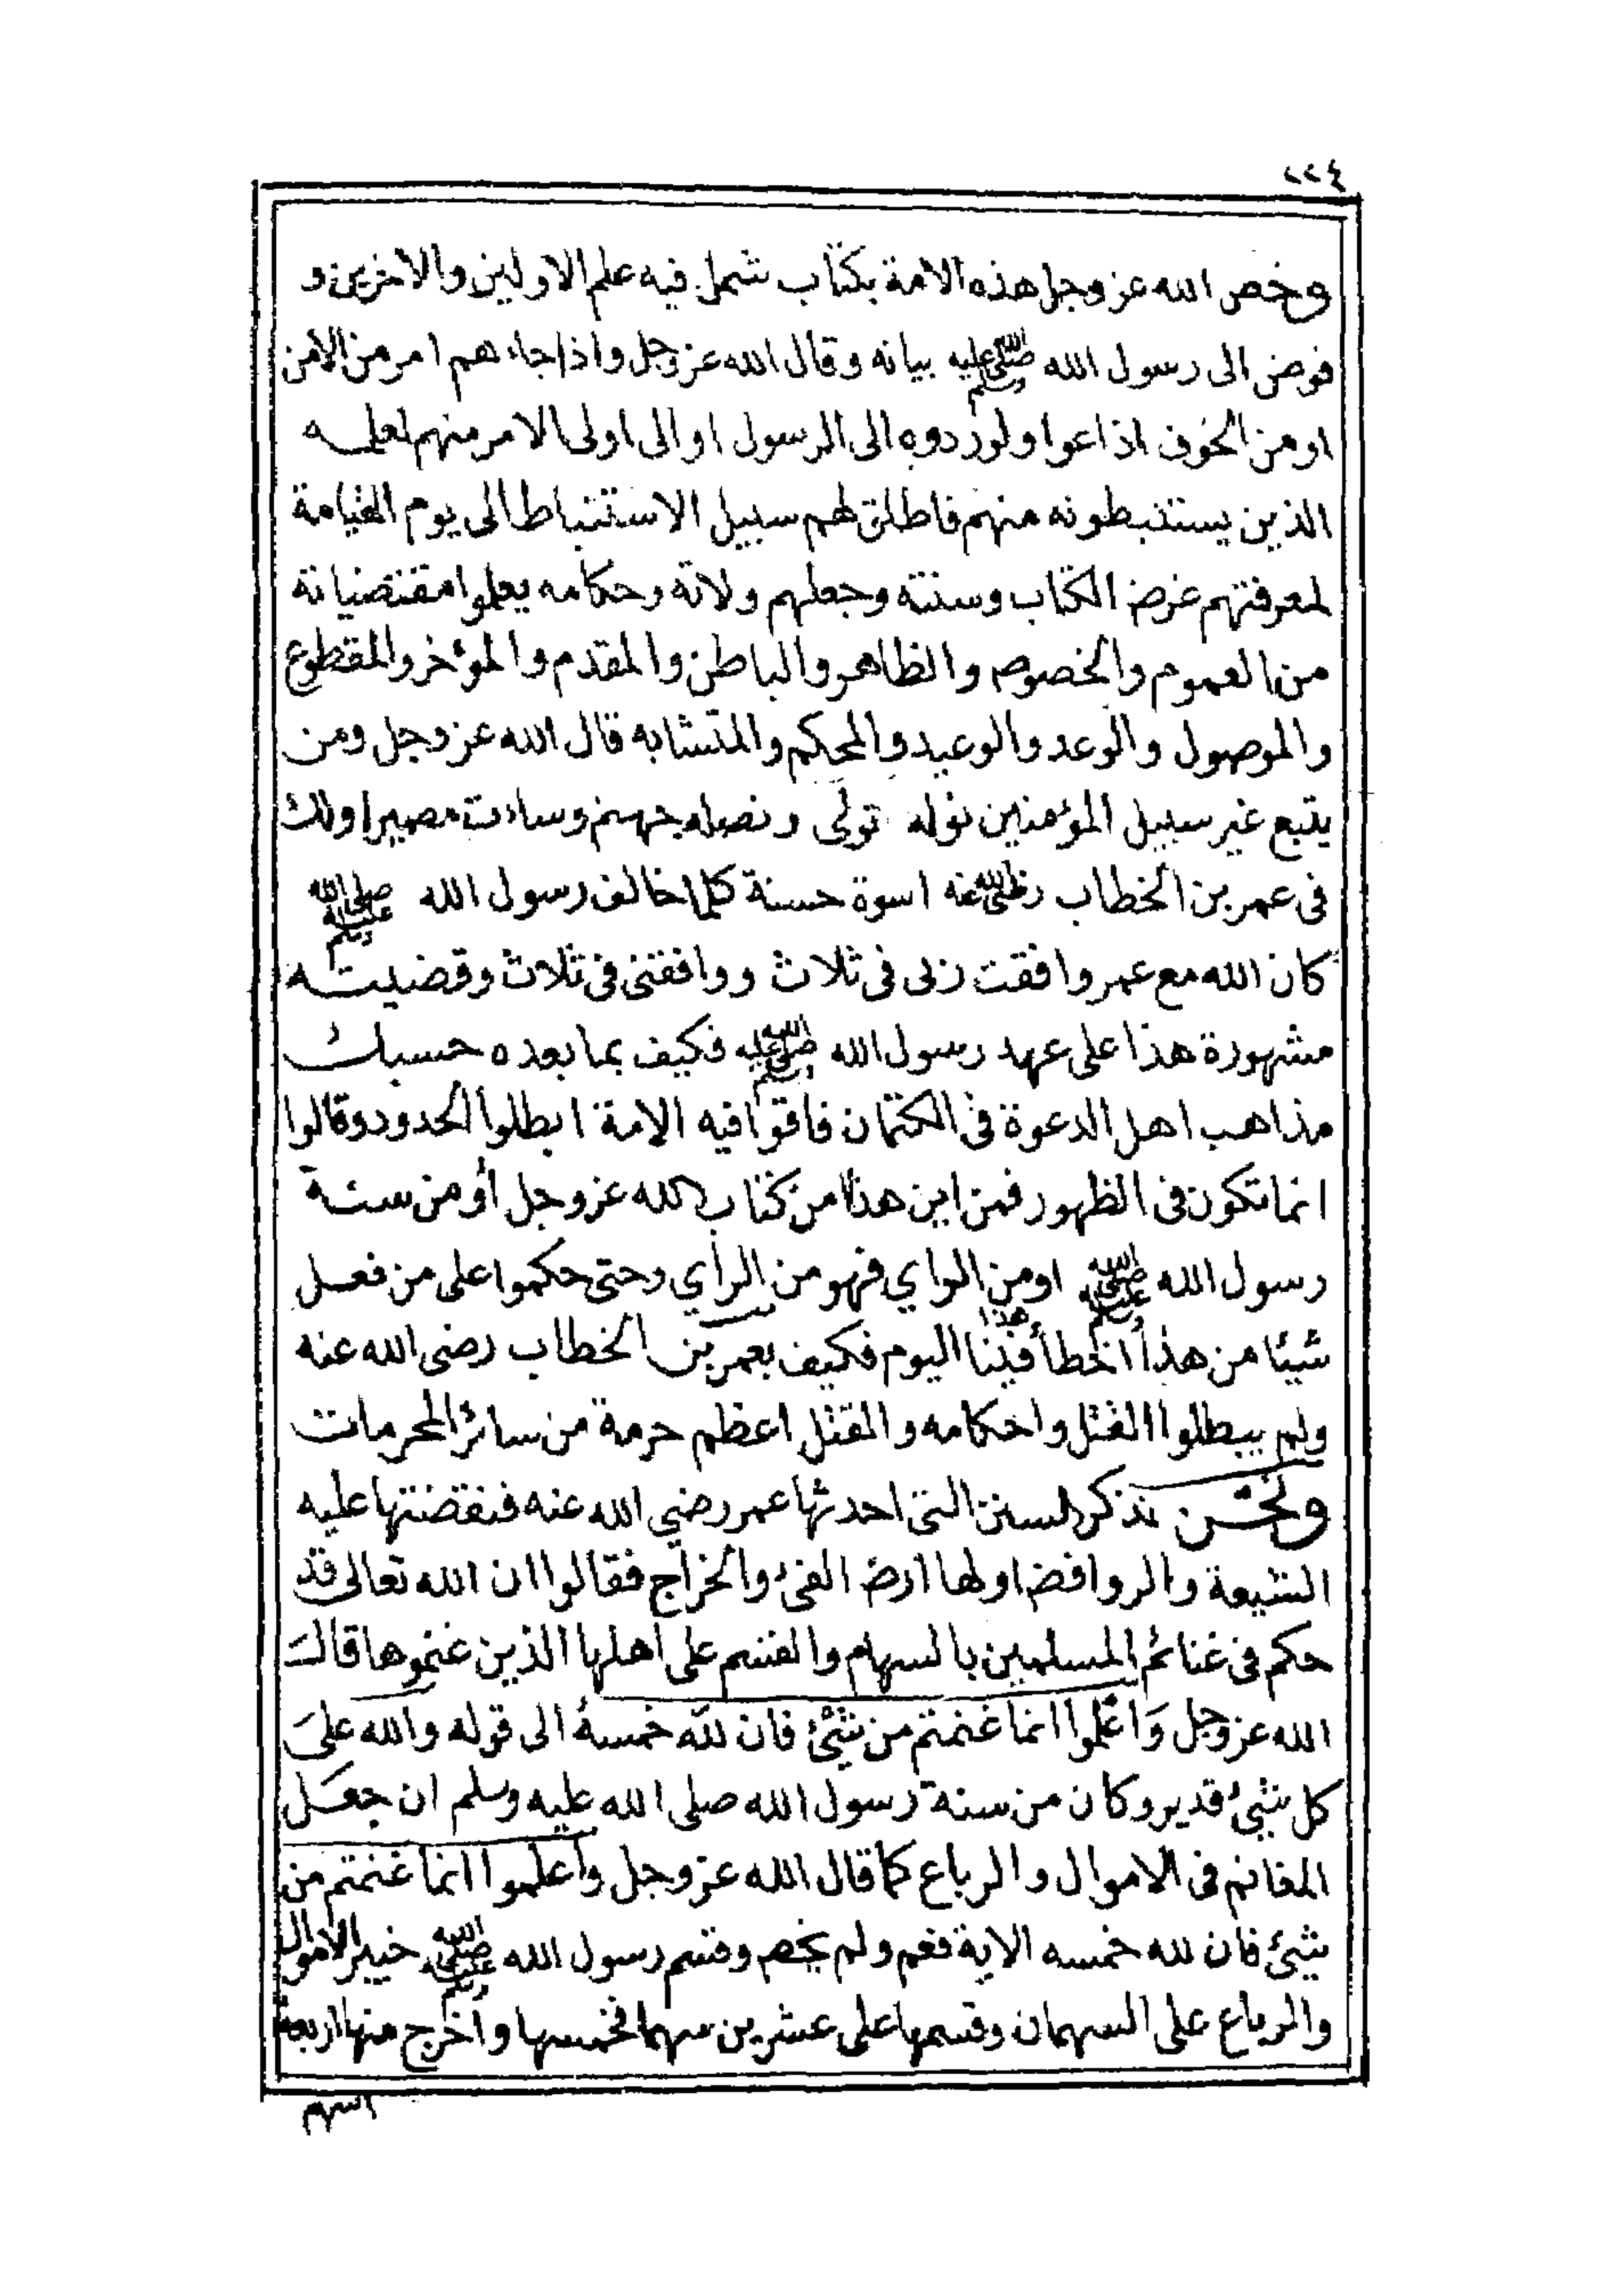 ٢٢٤
وخص الله عز وجل هذه الامة بكتاب شمل فيه علم الاولين والاخرين و
فوض الى رسول الله صلى الله عليه وسلم بيانه وقال الله عز وجل واذا جاءهم امر من الامن
او من الخوف اذاعوا ولو ردوه الى الرسول او الى اولى الامر منهم لعلمه
الذين يستنبطونه منهم فاطلق لهم سبيل الاستنباط الى يوم القيامة
لمعرفتهم غرض الكتاب وسنته وجعلهم ولاته وحكامه يعلموا مقتضياته
من العموم والخصوص والظاهر والباطن والمقدم والمؤخر والمقطوع
والموصول والوعد والوعيد والمحكم والمتشابه قال الله عز وجل ومن
يتبع غير سبيل المؤمنين نوله تولى ونصله جهنم وساءت مصيرا ولك
فى عمر بن الخطاب رضي الله عنه اسوة حسنة كلما خالف رسول الله صلى الله عليه وسلم
كان الله مع عمر وافقت ربى فى ثلاث ووافقنى فى ثلاث وقضيته
مشهورة هذا على عهد رسول الله صلى الله عليه وسلم فكيف بما بعده حسبك
مذاهب اهل الدعوة فى الكتمان فاقوا فيه الامة ابطلوا الحدود وقالوا
انما تكون فى الظهور فمن اين هذا من كتاب الله عز وجل أو من سنة
رسول الله صلى الله عليه وسلم او من الراي فهو من الرأي وحتى حكموا على من فعل
شيئا من هذا اخطأ فينا هذا اليوم فكيف بعمر بن الخطاب رضى الله عنه
ولم يبطلوا القتل واحكامه والقتل اعظم حرمة من سائر المحرمات
ونحن نذكر السنن التى احدثها عمر رضي الله عنه فنقضتها عليه
الشيعة والروافض اولها ارض الفئ والخراج فقالوا ان الله تعالى قد
حكم فى غنائم المسلمين بالسهام والقسم على اهلها الذين غنموها قال
الله عز وجل وَاعْلموا انما غنمتم من شئ فان لله خمسهُ الى قوله والله على
كل شئ قدير وكان من سنة رسول الله صلى الله عليه وسلم ان جعل
المغانم فى الاموال والرباع كما قال الله عز وجل واعلموا انما غنمتم من
شئ فان لله خمسه الاية فعم ولم يخص وقسم رسول الله صلى الله عليه وسلم خيبر الاموال
والرباع على السهمان وقسمها على عشرين سهما فخمسها واخرج منها اربعة
اسهم